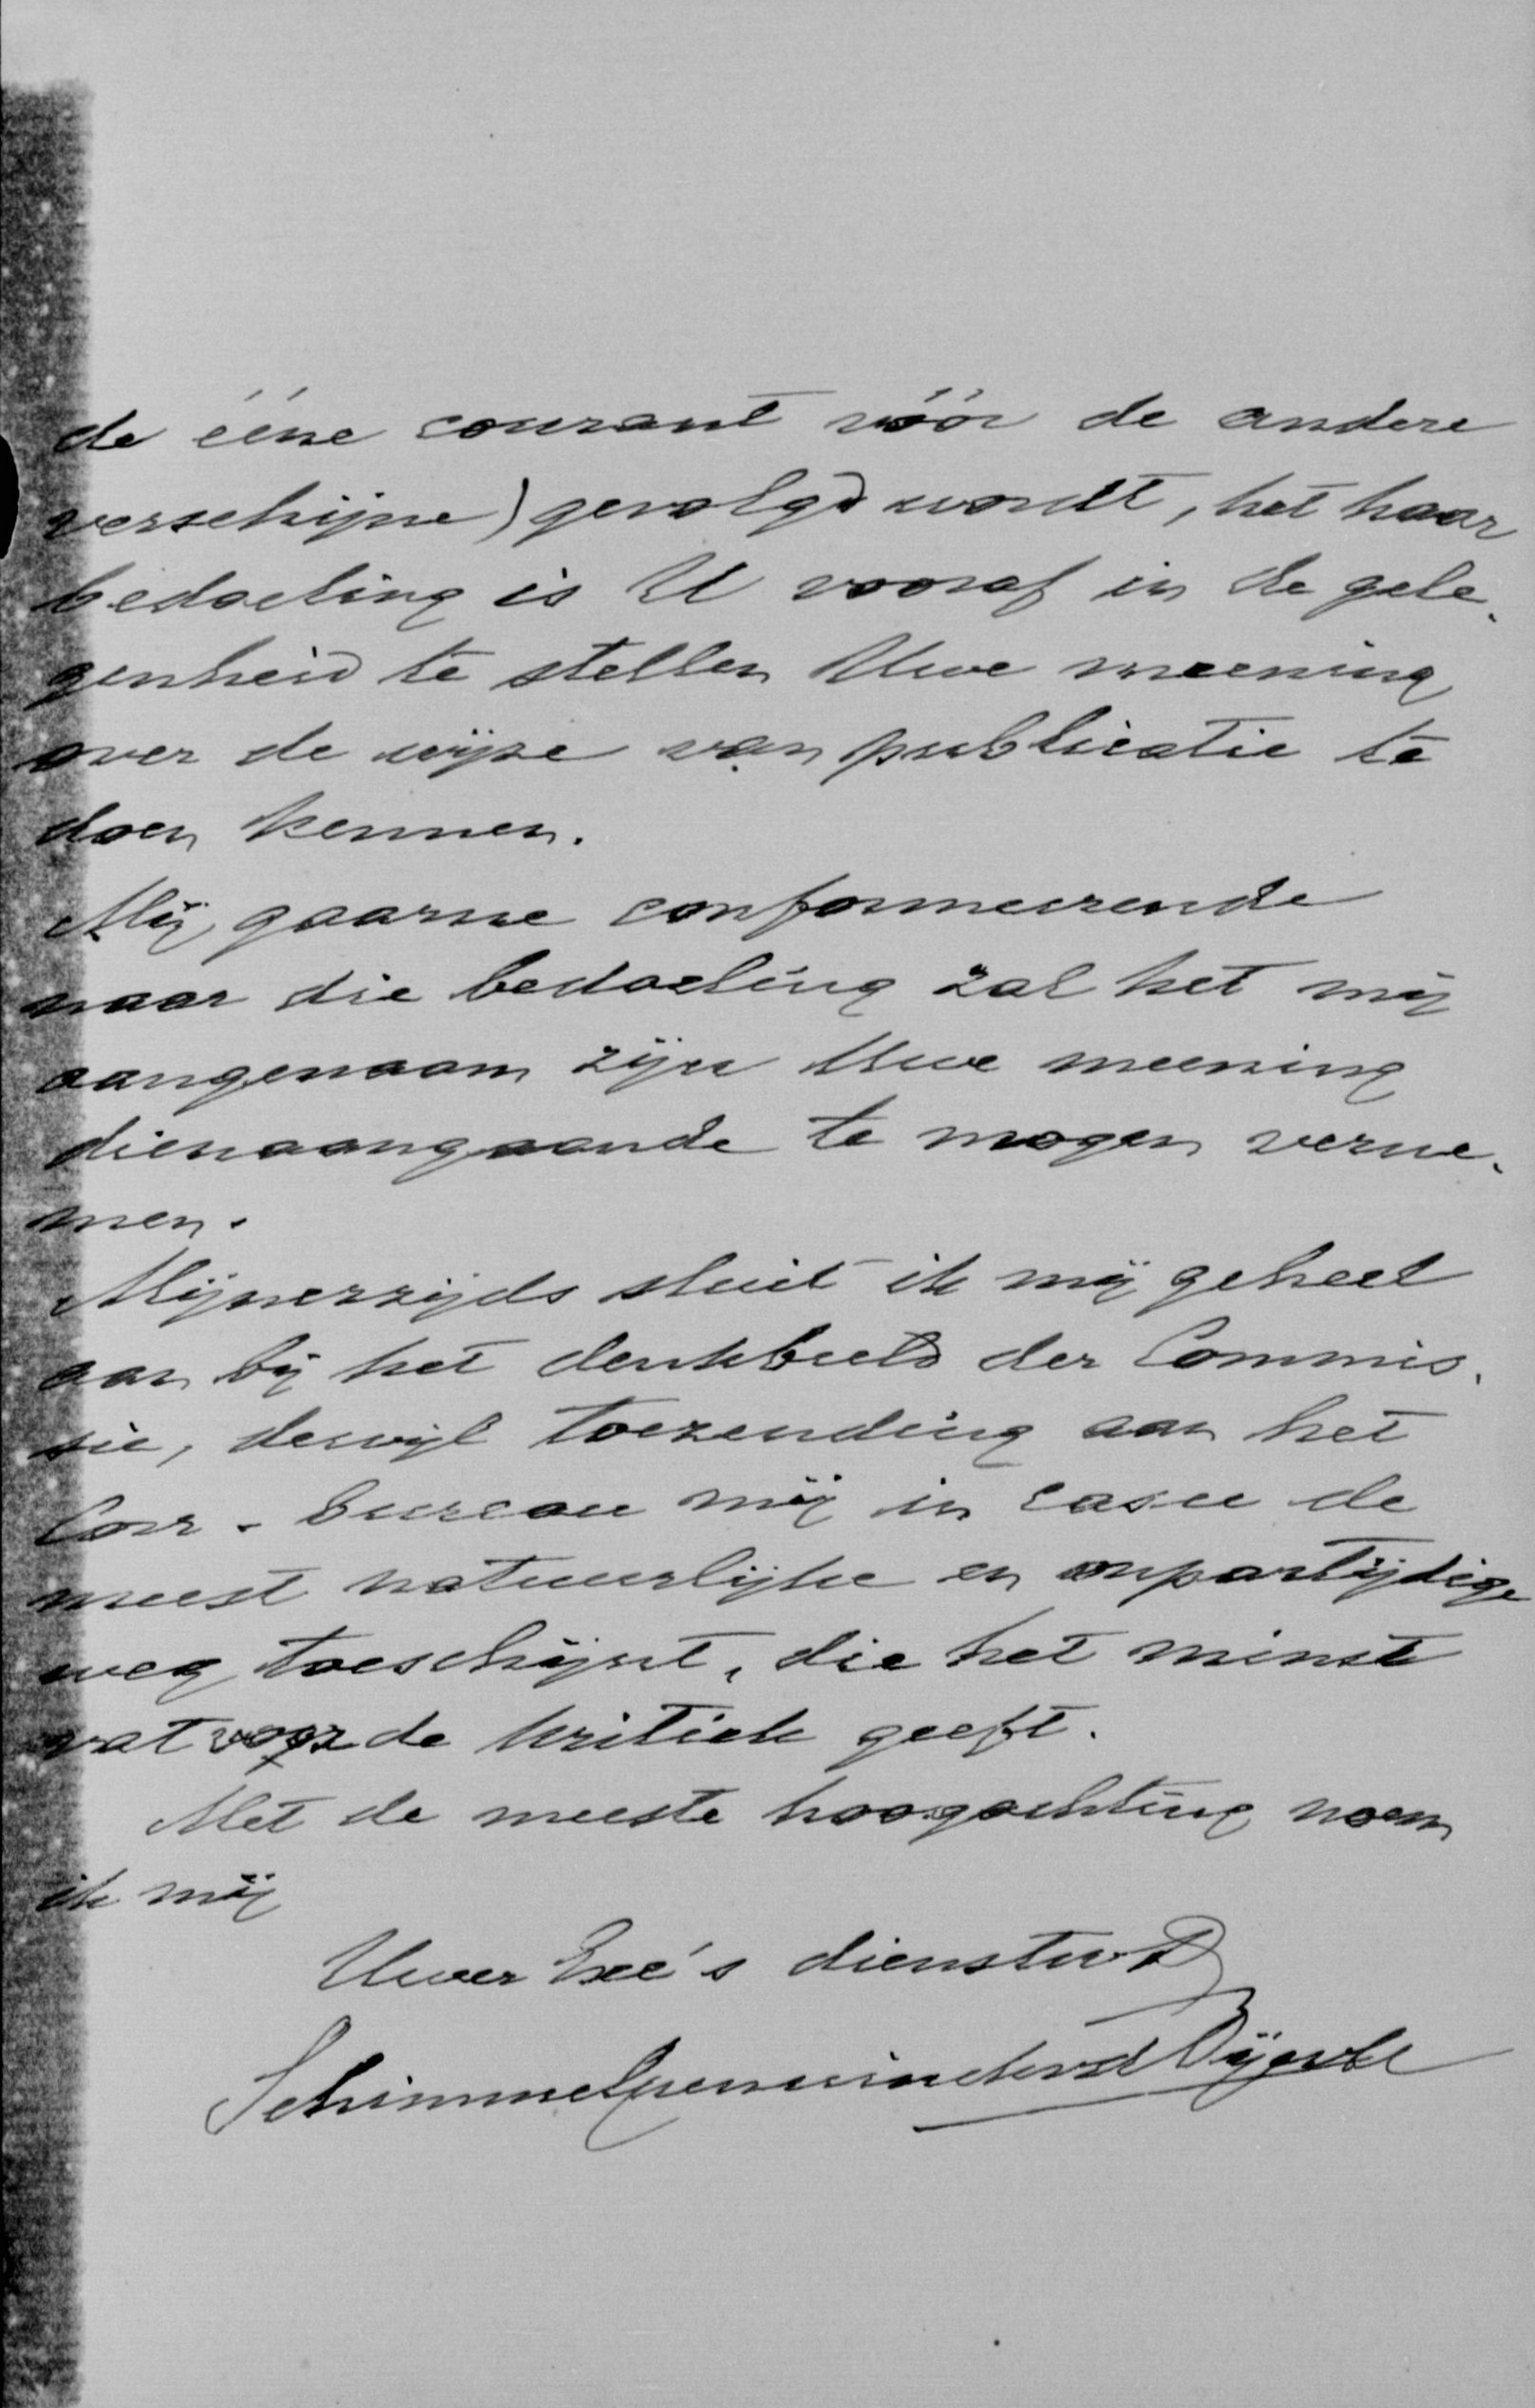 de ééne courant vóór de andere
verschijne) gevolgd wordt, het haar
bedoeling is U vooraf in de gele-
genheid te stellen Uwe meening
over de wijze van publicatie te
doen kennen.
Mij gaarne conformeerende
naar die bedoeling zal het mij
aangenaam zijn Uwe meening
dienaangaande te mogen verne-
men.
Mijnerzijds sluit ik mij geheel
aan bij het denkbeeld der Commis-
sie, derwijl toezending aan het
Corr. bureau mij in casu de
meest natuurlijke en onpartijdige
weg toeschijnt, die het minst
vat voor de kritiek geeft.
Met de meeste hoogachting noem
ik mij
Uwer Exc's dienstw
Schimmelpenninck vd Oijevle